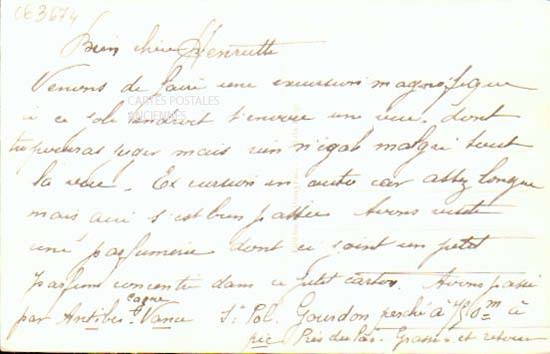 063674
Bien chère Henriette
Venons de faire une excursion magnifique
CARTES POSTALES
ANCIENNES
à ce joli endroit t'envoie une vue dont
tu pourras juger mais rien n'égal malgré tout
la vue. Excursion en auto car assez longue
mais qui s'est bien passée Avons visité
une parfumerie dont ci joint un petit
parfum concentré dans ce petit carton. Avons passé
Cagne
par Antibes Vence St Pol. Gourdon perché à m à
pic Près du Grasse et retour